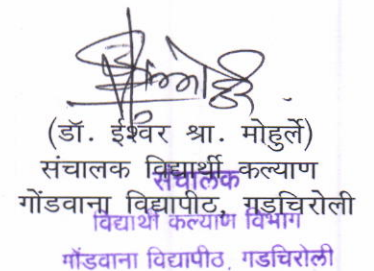 (डॉ. ईश्वर श्रा. मोहुर्ले)
संचालक विद्यार्थी कल्याण
संचालक
गोंडवाना विद्यापीठ, गडचिरोली
विद्यार्थी कल्याण विभाग
गोंडवाना विद्यापीठ, गडचिरोली